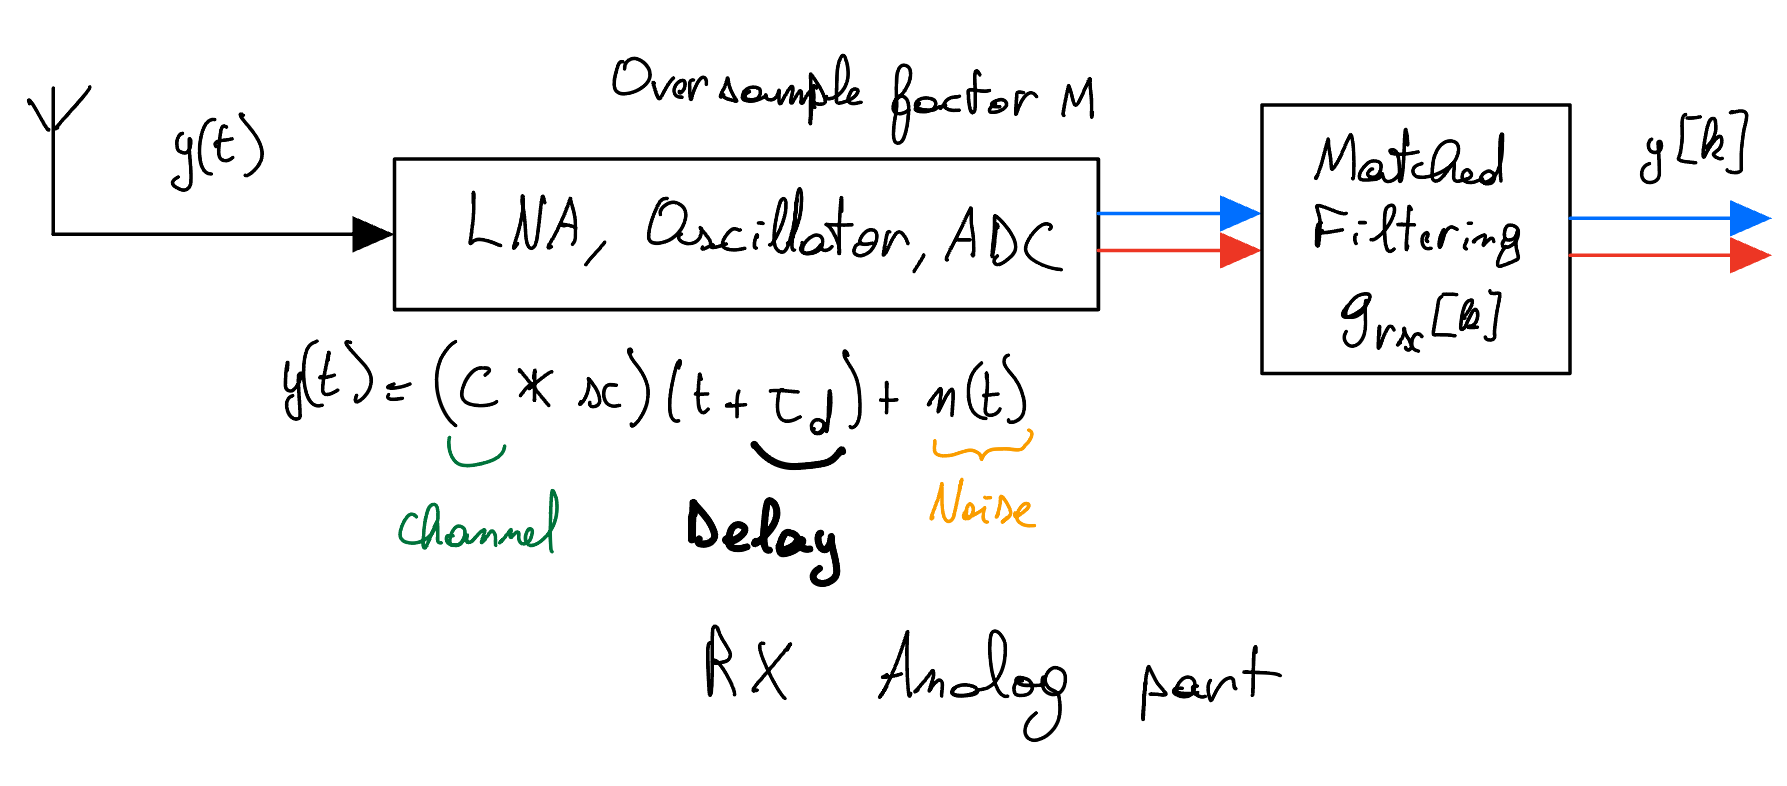 Oversample factor M
y(t)
LNA, Oscillator, ADC
Matched
Filtering
g_rx[k]
y[k]
y(t) = (C * x)(t + τ_d) + n(t)
Channel
Delay
Noise
RX Analog part